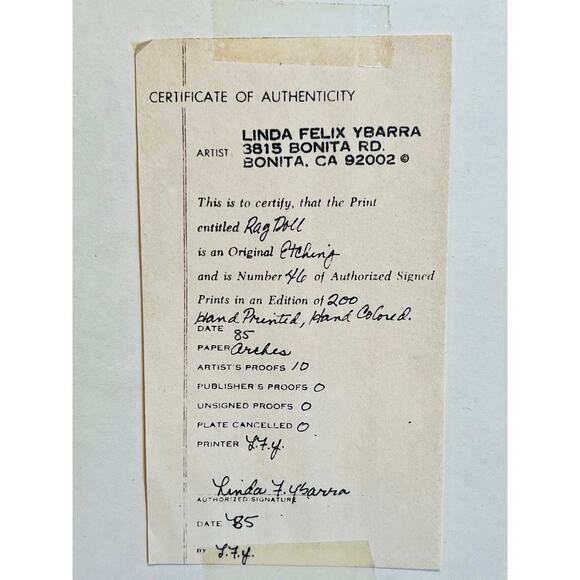 CERTIFICATE OF AUTHENTICITY
LINDA FELIX YBARRA
ARTIST 3815 BONITA RD.
BONITA, CA 92002 ©
This is to certify, that the Print
entitled Rag Doll
is an Original Etching
and is Number 46 of Authorized Signed
Prints in an Edition of 200
Hand Printed, Hand Colored.
DATE 85
PAPER Arches
ARTIST'S PROOFS 10
PUBLISHER'S PROOFS 0
UNSIGNED PROOFS 0
PLATE CANCELLED 0
PRINTER L.F.Y.
Linda F. Ybarra
AUTHORIZED SIGNATURE
DATE '85
BY L.F.Y.